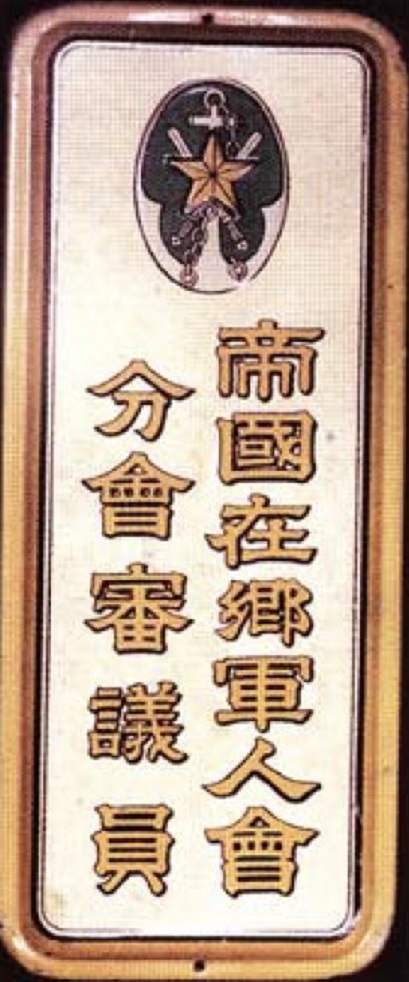 帝國在鄉軍人會
分會審議員